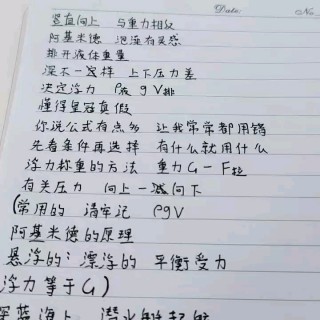 Date:
No.
竖直向上 与重力相反
阿基米德 泡澡有灵感
排开液体重量
深不一定样 上下压力差
决定浮力 ρ液 g V排
懂得皇冠真假
你说公式有点多 让我常常都用错
先看条件再选择 有什么就用什么
浮力称重的方法 重力G-F拉
有关压力 向上-减向下
(常用的 请牢记 ρgV
阿基米德的原理
悬浮的；漂浮的 平衡受力
浮力等于G)
深蓝海上 潜水艇起航